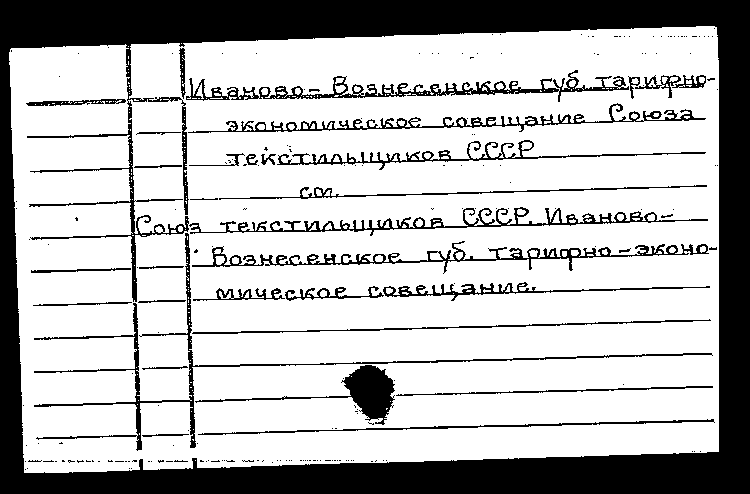 Иваново-Вознесенское губ. тарифно-
экономическое совещание Союза
текстильщиков СССР
см.
Союз текстильщиков СССР. Иваново-
Вознесенское губ. тарифно-эконо-
мическое совещание.